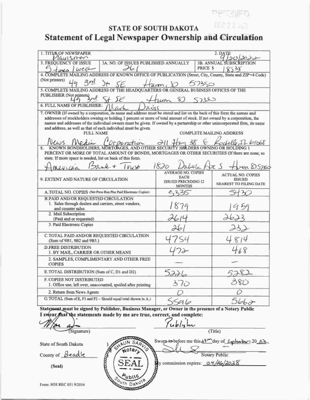 STATE OF SOUTH DAKOTA
Statement of Legal Newspaper Ownership and Circulation
1. TITLE OF NEWSPAPER
Plainsman
2. DATE
9/20/2022
3. FREQUENCY OF ISSUE
5 times / week
3A. NO. OF ISSUES PUBLISHED ANNUALLY
261
3B. ANNUAL SUBSCRIPTION
PRICE $
4. COMPLETE MAILING ADDRESS OF KNOWN OFFICE OF PUBLICATION (Street, City, County, State and ZIP+4 Code)
(Not printers)
49 3rd St SE Huron, SD 57350
5. COMPLETE MAILING ADDRESS OF THE HEADQUARTERS OR GENERAL BUSINESS OFFICES OF THE
PUBLISHER (Not printers)
49 3rd St SE Huron SD 57350
6. FULL NAME OF PUBLISHER:
Mark Davis
7. OWNER (If owned by a corporation, its name and address must be stated and list on the back of this form the names and
addresses of stockholders owning or holding 1 percent or more of total amount of stock. If not owned by a corporation, the
names and addresses of the individual owners must be given. If owned by a partnership or other unincorporated firm, its name
and address, as well as that of each individual must be given)
FULL NAME
COMPLETE MAILING ADDRESS
News Media Corporation 211 Hwy 38 E Rochelle, IL 61068
8. KNOWN BONDHOLDERS, MORTGAGEES, AND OTHER SECURITY HOLDERS OWNING OR HOLDING 1
PERCENT OR MORE OF TOTAL AMOUNT OF BONDS, MORTGAGES OR OTHER SECURITIES (If there are none, so
state. If more space is needed, list on back of this form).
American Bank + Trust 1820 Dakota Ave S Huron SD 57350
9. EXTENT AND NATURE OF CIRCULATION
AVERAGE NO. COPIES
EACH
ISSUES PRECEDING 12
MONTHS
ACTUAL NO. COPIES
ISSUED
NEAREST TO FILING DATE
A. TOTAL NO. COPIES (Net Press Run Plus Paid Electronic Copies)
B. PAID AND/OR REQUESTED CIRCULATION
1. Sales through dealers and carriers, street vendors,
and counter sales
1879 1959
2. Mail Subscription
(Paid and or requested)
2614 2623
3. Paid Electronic Copies
261 232
C. TOTAL PAID AND/OR REQUESTED CIRCULATION
(Sum of 9B1, 9B2 and 9B3.)
4754 4814
D. FREE DISTRIBUTION
1. BY MAIL, CARRIER OR OTHER MEANS
472 468
2. SAMPLES, COMPLIMENTARY AND OTHER FREE
COPIES
E. TOTAL DISTRIBUTION (Sum of C, D1 and D2)
5226 5282
F. COPIES NOT DISTRIBUTED
1. Office use, left over, unaccounted, spoiled after printing
370 380
2. Return from News Agents
0 0
G. TOTAL (Sum of E, F1 and F2 – Should equal total shown in A.)
5596 5662
Statement must be signed by Publisher, Business Manager, or Owner in the presence of a Notary Public
I swear that the statements made by me are true, correct, and complete:
Publisher
(Signature)
(Title)
State of South Dakota
County of Beadle
(Seal)
SHAUN
NOTARY
SEAL
PUBLIC
SOUTH DAKOTA
Sworn to before me this day of September 20 22.
Notary Public
My commission expires:
Form: SOS REC 051 9/2016